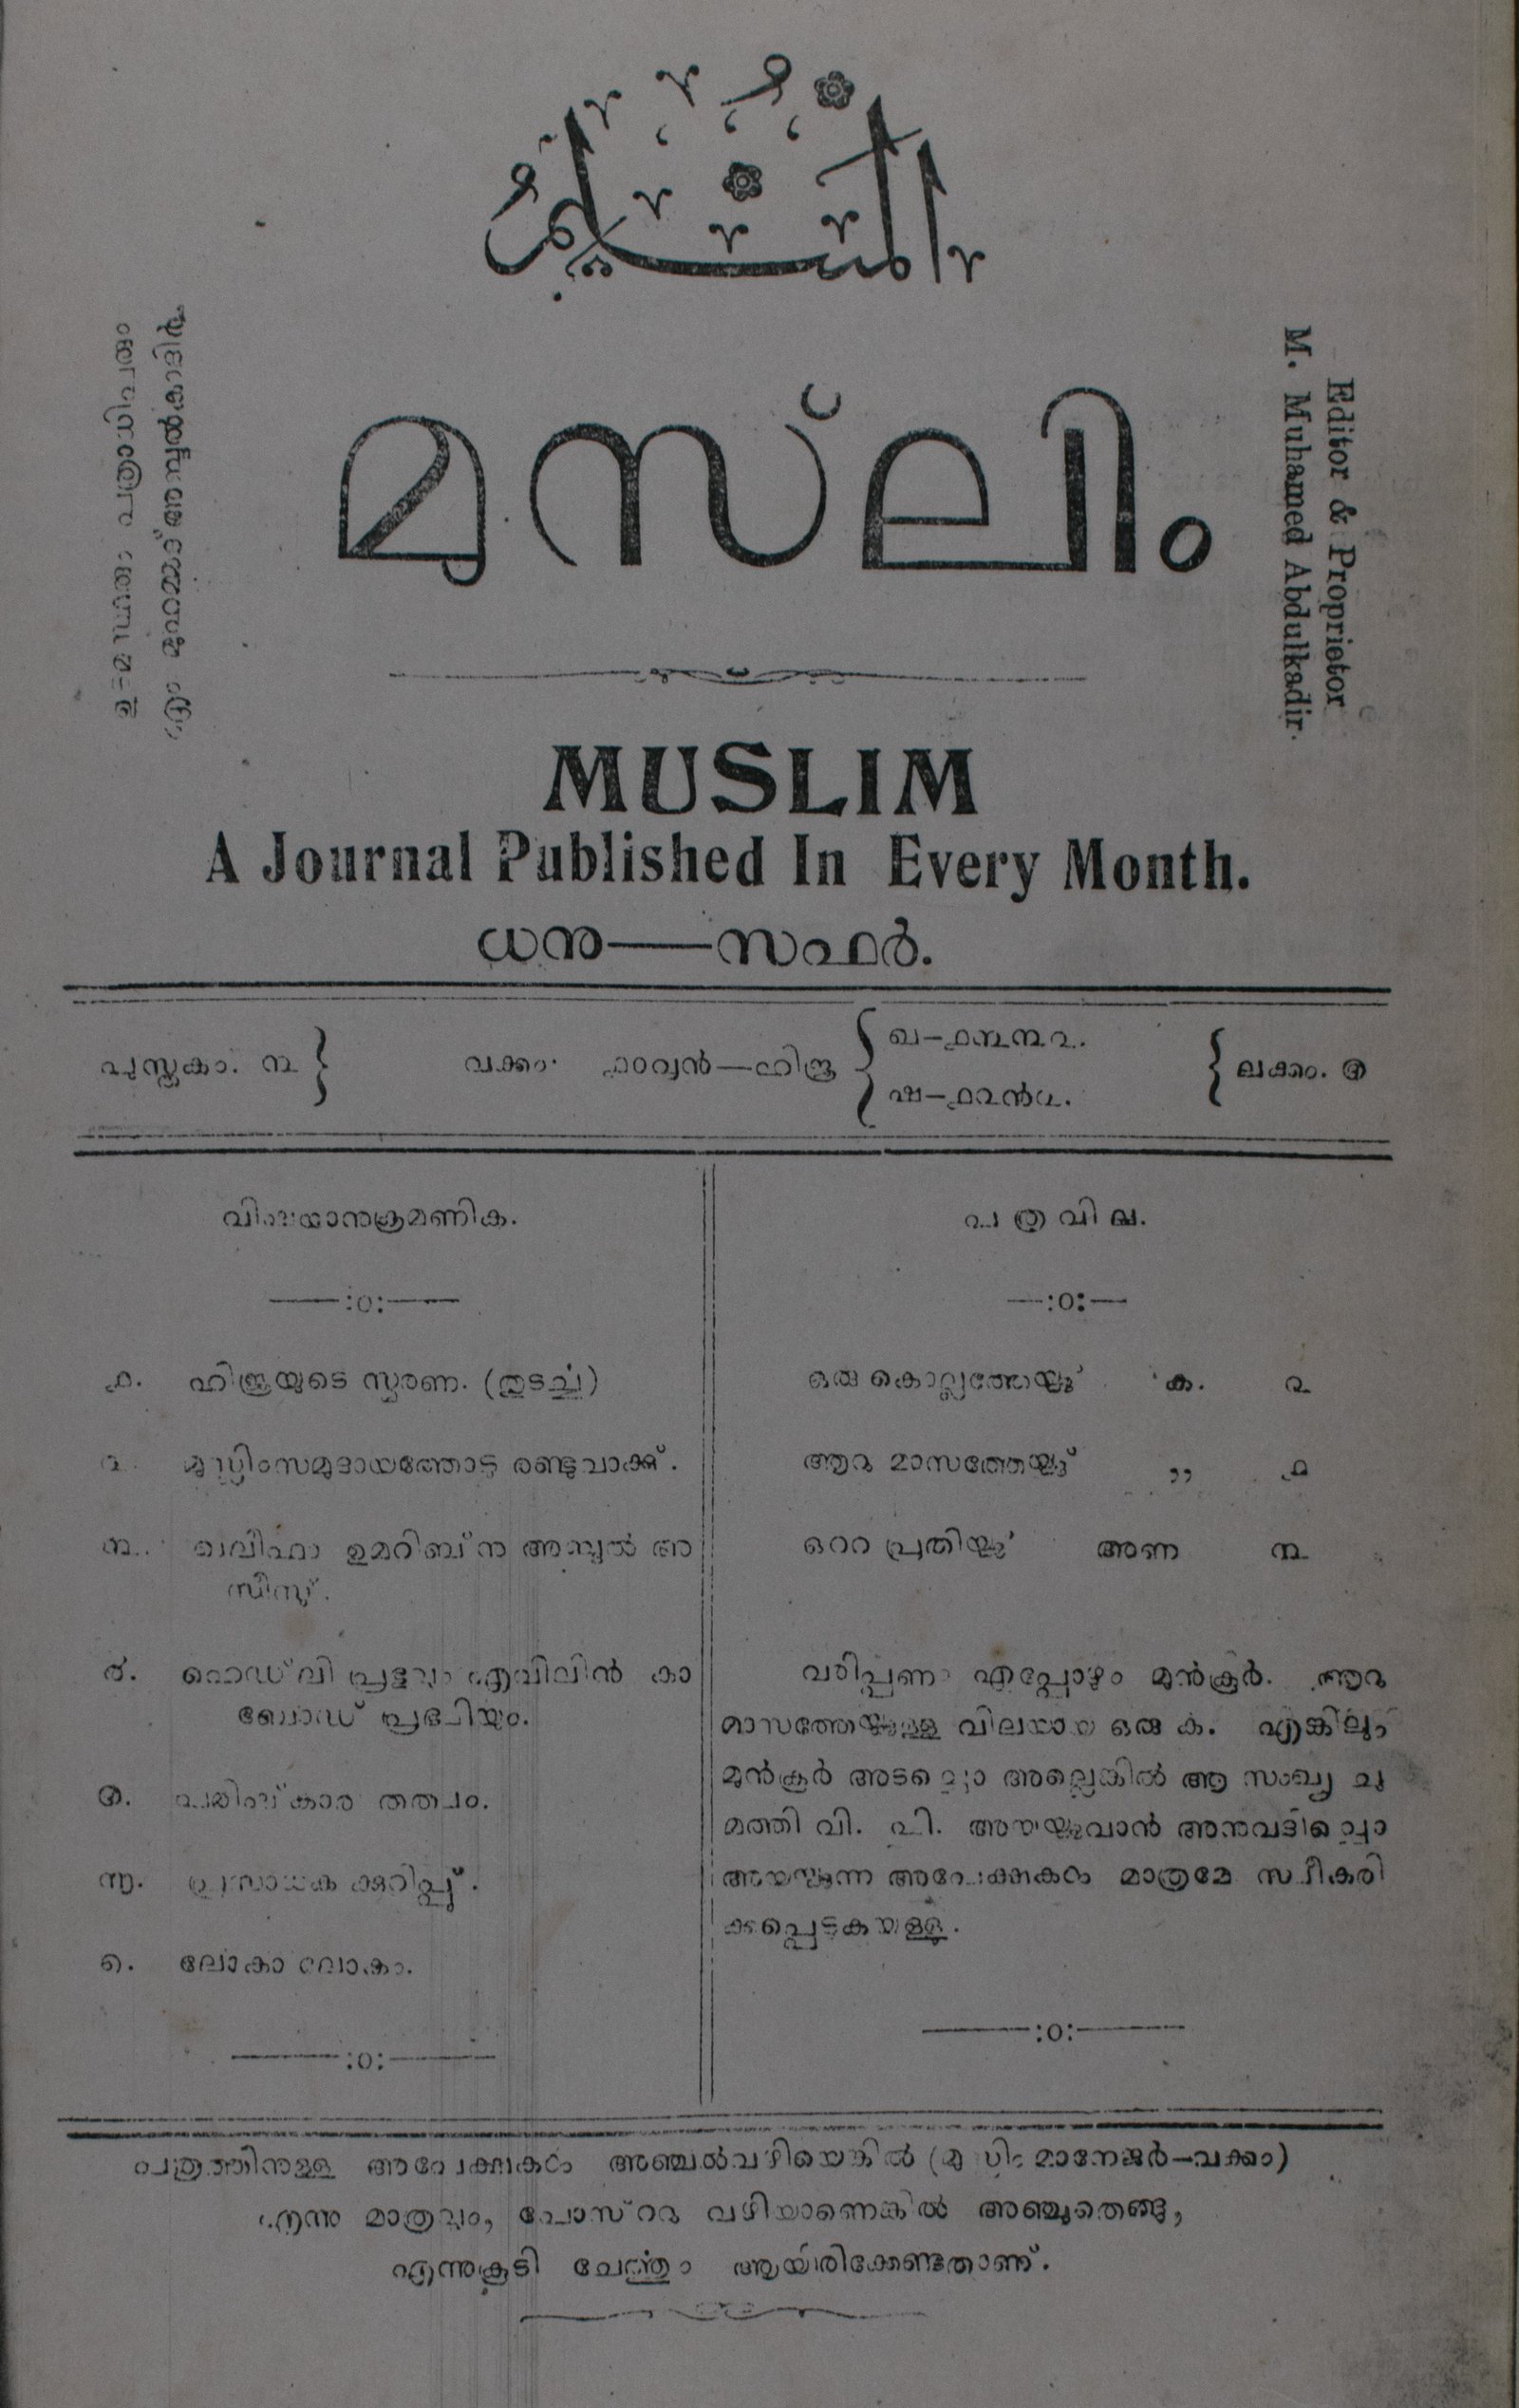 المسلم
മുസ്ലിം
Editor & Proprietor
M. Muhamed Abdulkadir.
MUSLIM
A Journal Published In Every Month.
ധനു—സഫർ.
പുസ്തകം. ൩
വക്കം. ഹിജ്ര
ഖ—൧൩൩൨.
ലക്കം. ൫
വിഷയാനുക്രമണിക.
—:o:—
൧. ഹിജ്രയുടെ സ്മരണ. (തുടർച്ച)
൨. മുസ്ലിംസമുദായത്തോടു രണ്ടുവാക്ക്.
൩. ഖലീഫാ ഉമറിബ്നു അബ്ദുൽ അ
സീസ്.
൪. പ്രഭുവും കാ
൫. പരിഷ്കാര തത്വം.
൬. കുറിപ്പ്.
൭. ലോകാലോകം.
—:o:—
പത്ര വില.
—:o:—
ഒരു കൊല്ലത്തേയ്ക്കു് ക. ൨
ആറു മാസത്തേയ്ക്കു് ,, ൧
ഒററ പ്രതിയ്ക്കു് അണ ൩
വരിപ്പണം എപ്പോഴും മുൻകൂർ. ആറു
മാസത്തേയ്ക്കുള്ള വിലയായ ഒരു ക. എങ്കിലും
മുൻകൂർ അടച്ചൊ അല്ലെങ്കിൽ ആ സംഖ്യ ചു
മത്തി വി. പി. അയയ്ക്കുവാൻ അനുവദിച്ചൊ
അയയ്ക്കുന്ന അപേക്ഷകൾ മാത്രമേ സ്വീകരി
ക്കപ്പെടുകയുള്ളു.
—:o:—
പത്രത്തിനുള്ള അപേക്ഷകൾ അഞ്ചൽവഴിയെങ്കിൽ (മുസ്ലിം മാനേജർ—വക്കം)
എന്നു മാത്രവും, പോസ്ററു വഴിയാണെങ്കിൽ അഞ്ചുതെങ്ങു,
എന്നുകൂടി ചേർത്തും ആയിരിക്കേണ്ടതാണ്.